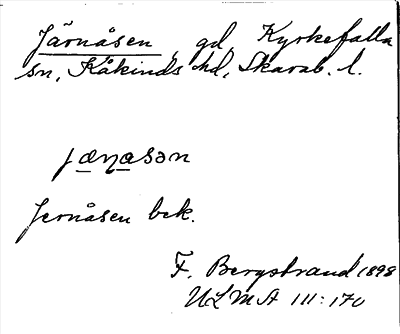 Järnåsen, gd, Kyrkefalla
sn, Kåkinds hd, Skarab. l.
jæṇasən
Jernåsen bek.
F. Bergstrand 1898
ULMA 111:170